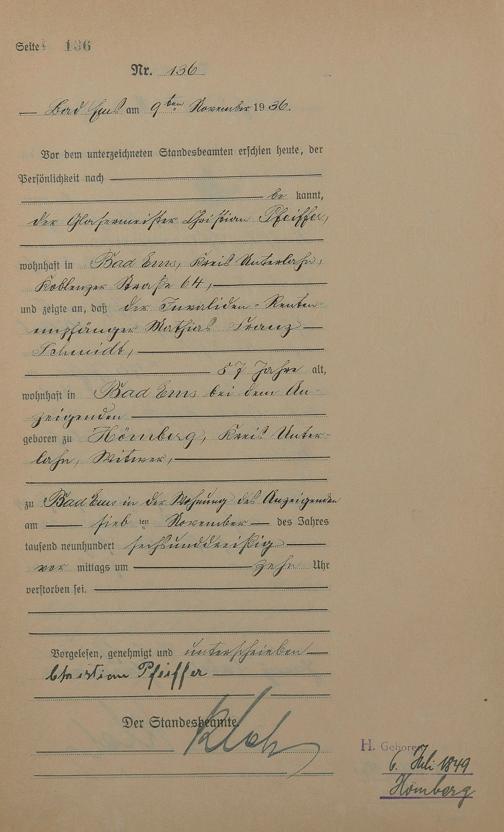 Seite 136
Nr. 136
Bad Ems am 9ten November 1936.
Vor dem unterzeichneten Standesbeamten erschien heute, der
Persönlichkeit nach
be kannt,
der Glasermeister Christian Pfeiffer,
wohnhaft in Bad Ems, Kreis Unterlahn,
Koblenzer Straße 64,
und zeigte an, daß der Invaliden-Renten-
empfänger Mathias Franz
Schmidt,
57 Jahre alt,
wohnhaft in Bad Ems bei dem An-
zeigenden
geboren zu Hömberg, Kreis Unter-
lahn, Witwer,
zu Bad Ems in der Wohnung des Anzeigenden
am sieb ten November des Jahres
tausend neunhundert sechsunddreißig
vor mittags um zehn Uhr
verstorben sei.
Vorgelesen, genehmigt und unterschrieben
Christian Pfeiffer
Der Standesbeamte
H. Geboren
6. Juli 1849
Homberg